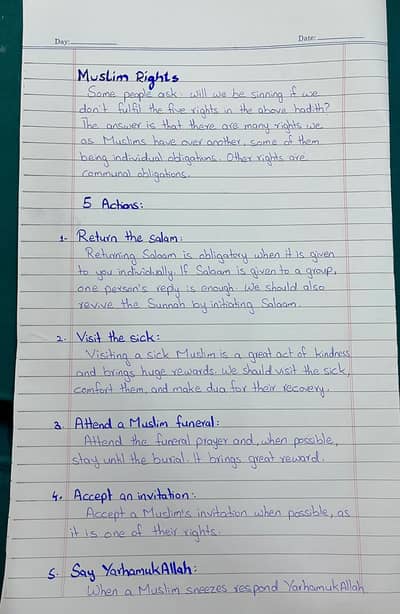 Day: Date:
Muslim Rights
Some people ask: will we be sinning if we
don't fulfil the five rights in the above hadith?
The answer is that there are many rights we
as Muslims have over another, some of them
being individual obligations. Other rights are
communal obligations.
5 Actions:
1- Return the salam:
Returning Salaam is obligatory when it is given
to you individually. If Salaam is given to a group,
one person's reply is enough. We should also
revive the Sunnah by initiating Salaam.
2. Visit the sick:
Visiting a sick Muslim is a great act of kindness
and brings huge rewards. We should visit the sick,
comfort them, and make dua for their recovery.
3. Attend a Muslim funeral:
Attend the funeral prayer and, when possible,
stay until the burial. It brings great reward.
4. Accept an invitation:
Accept a Muslim's invitation when possible, as
it is one of their rights.
5. Say YarhamukAllah:
When a Muslim sneezes respond YarhamukAllah